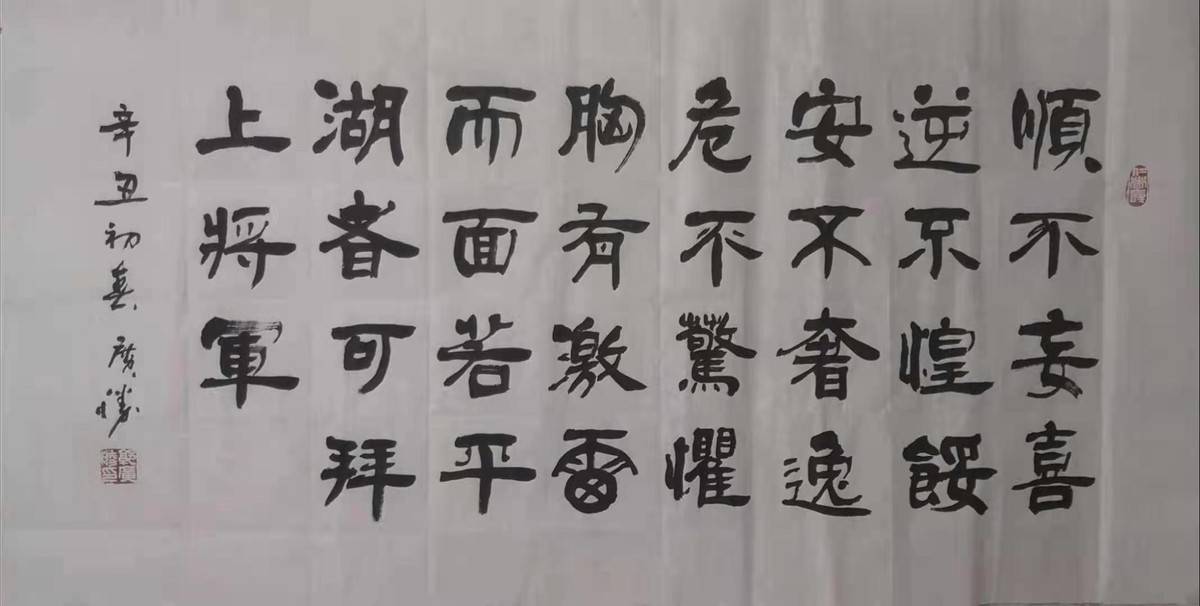 順不妄喜
逆不惶餒
安不奢逸
危不驚懼
胸有激雷
而面若平
湖者可拜
上將軍
辛丑初春 广勝